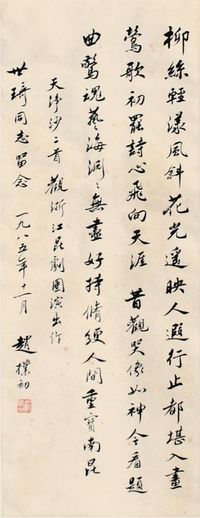 柳絲輕漾風斜花光遙映人遐行止都堪入畫
鶯歌初罷詩心飛向天涯 昔觀哭像如神今看題
曲驚魂藝海洞〻無盡好持脩綆人間重寶南昆
天淨沙二首 觀浙江昆劇團演出作
世琦同志留念 一九八五年十一月 趙樸初